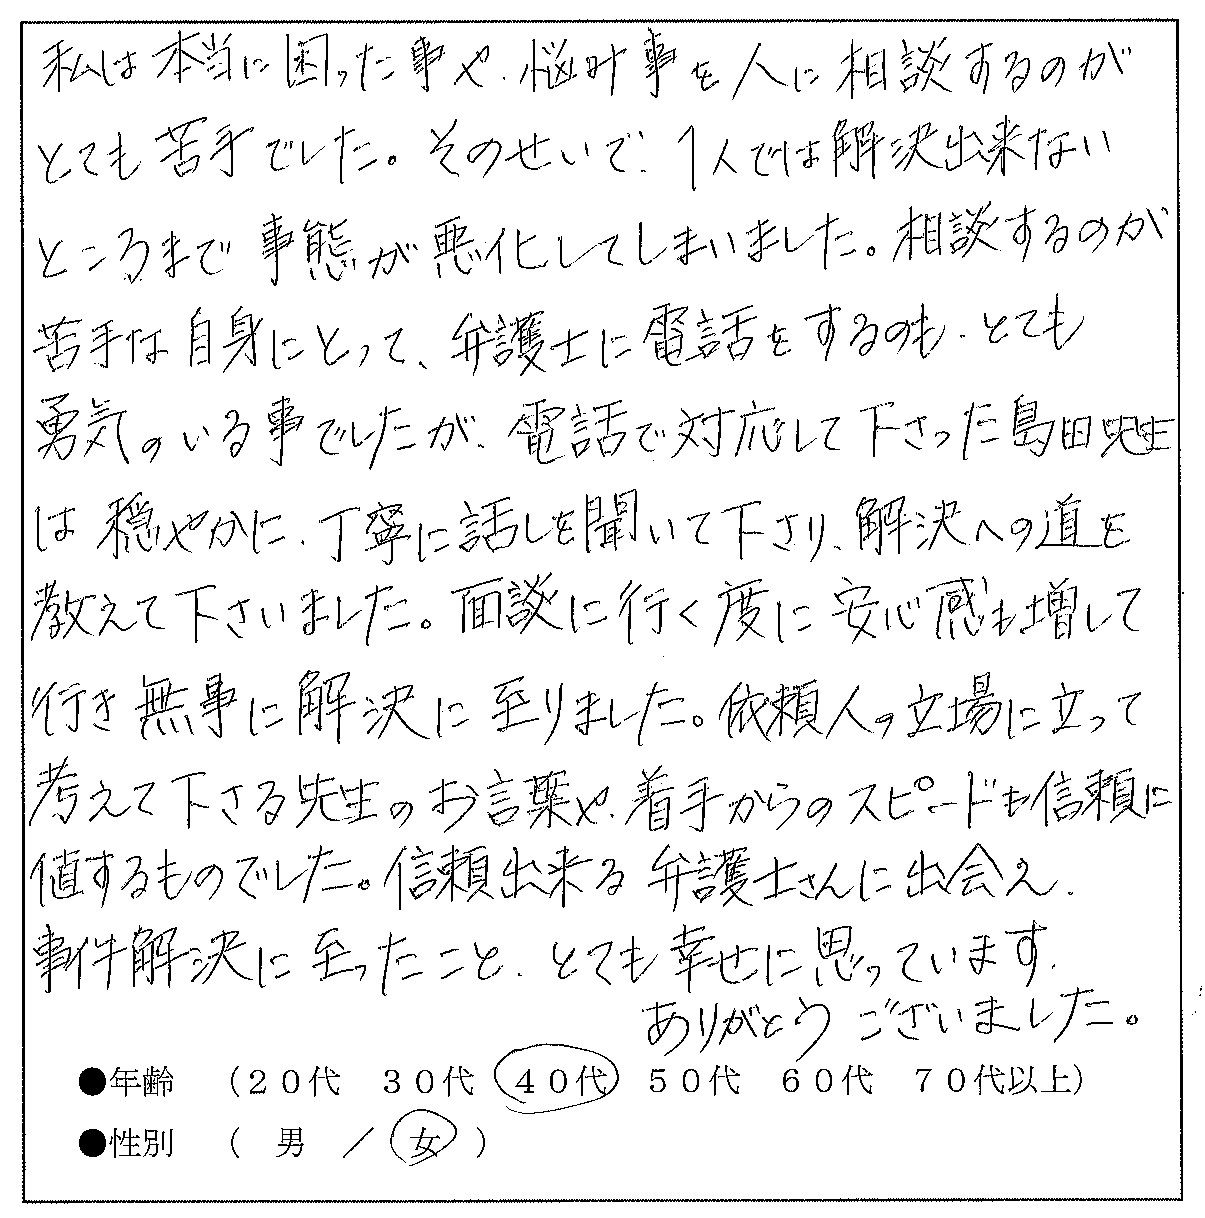 私は本当に困った事や、悩み事を人に相談するのが
とても苦手でした。そのせいで、1人では解決出来ない
ところまで事態が悪化してしまいました。相談するのが
苦手な自身にとって、弁護士に電話をするのも、とても
勇気のいる事でしたが、電話で対応して下さった島田先生
は穏やかに、丁寧に話しを聞いて下さり、解決への道を
教えて下さいました。面談に行く度に安心感も増して
行き無事に解決に至りました。依頼人の立場に立って
考えて下さる先生のお言葉や、着手からのスピードも信頼に
値するものでした。信頼出来る弁護士さんに出会え、
事件解決に至ったこと、とても幸せに思っています。
ありがとうございました。
●年齢 （２０代 ３０代 ４０代 ５０代 ６０代 ７０代以上）
●性別 （ 男 ／ 女 ）